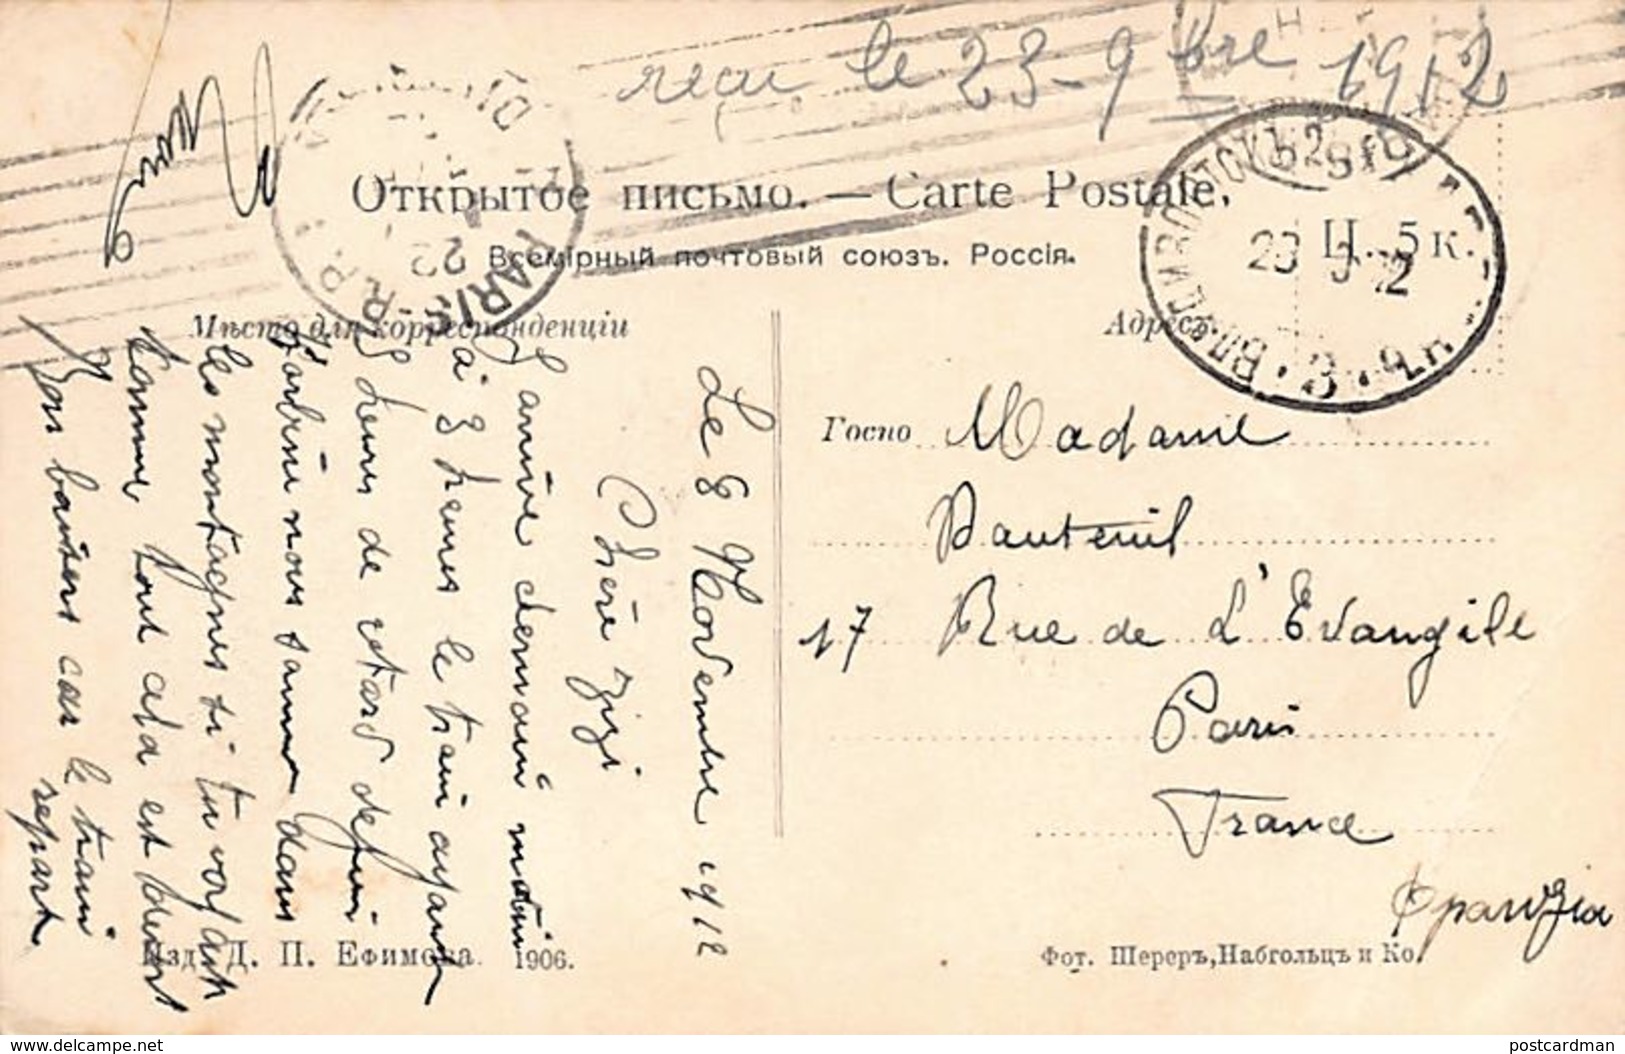 reçu le 23-9bre 1912
Открытое письмо. — Carte Postale.
Всемірный почтовый союзъ. Россія.
Ц. 5 к.
PARIS
22
R.P.
28 12
Мѣсто для корреспонденціи
Адресъ.
Le 8 Novembre 1912
Chère Zizi
J'arrive demain matin
à 8 heures le train ayant
8 heures de retard depuis
Karbine nous sommes dans
les montagnes si tu voyais
comme tout cela est
Bons baisers car le train
repart
Госпо
Madame
Nanteuil
17 Rue de L'Evangile
Paris
France
Франзия
Изд. Д. П. Ефимова. 1906.
Фот. Шереръ, Набгольцъ и Ко.
www.delcampe.net
postcardman